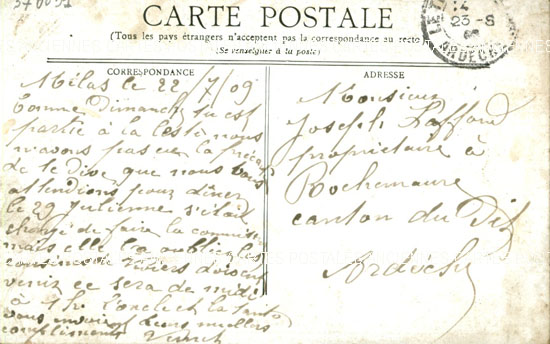 376091
CARTE POSTALE
(Tous les pays étrangers n'acceptent pas la correspondance au recto)
(Se renseigner à la poste)
CORRESPONDANCE
Mélas le 22/7/09
Comme Dimanche tu est
partie à la leste nous
n'avons pas eu la
de te dire que nous vous
attendions pour dîner
le 29 Julienne s'était
chargé de faire la commission
mais elle l'a oublié les
cousines de Viviers doivent
venir ce sera de midi
à 1h L'oncle et la tante
vous envoient leurs meilleurs
compliments
ADRESSE
Monsieur
Joseph Laffond
propriétaire à
Rochemaure
canton du Dit
Ardèche
LE T
23-8
ARDECHE